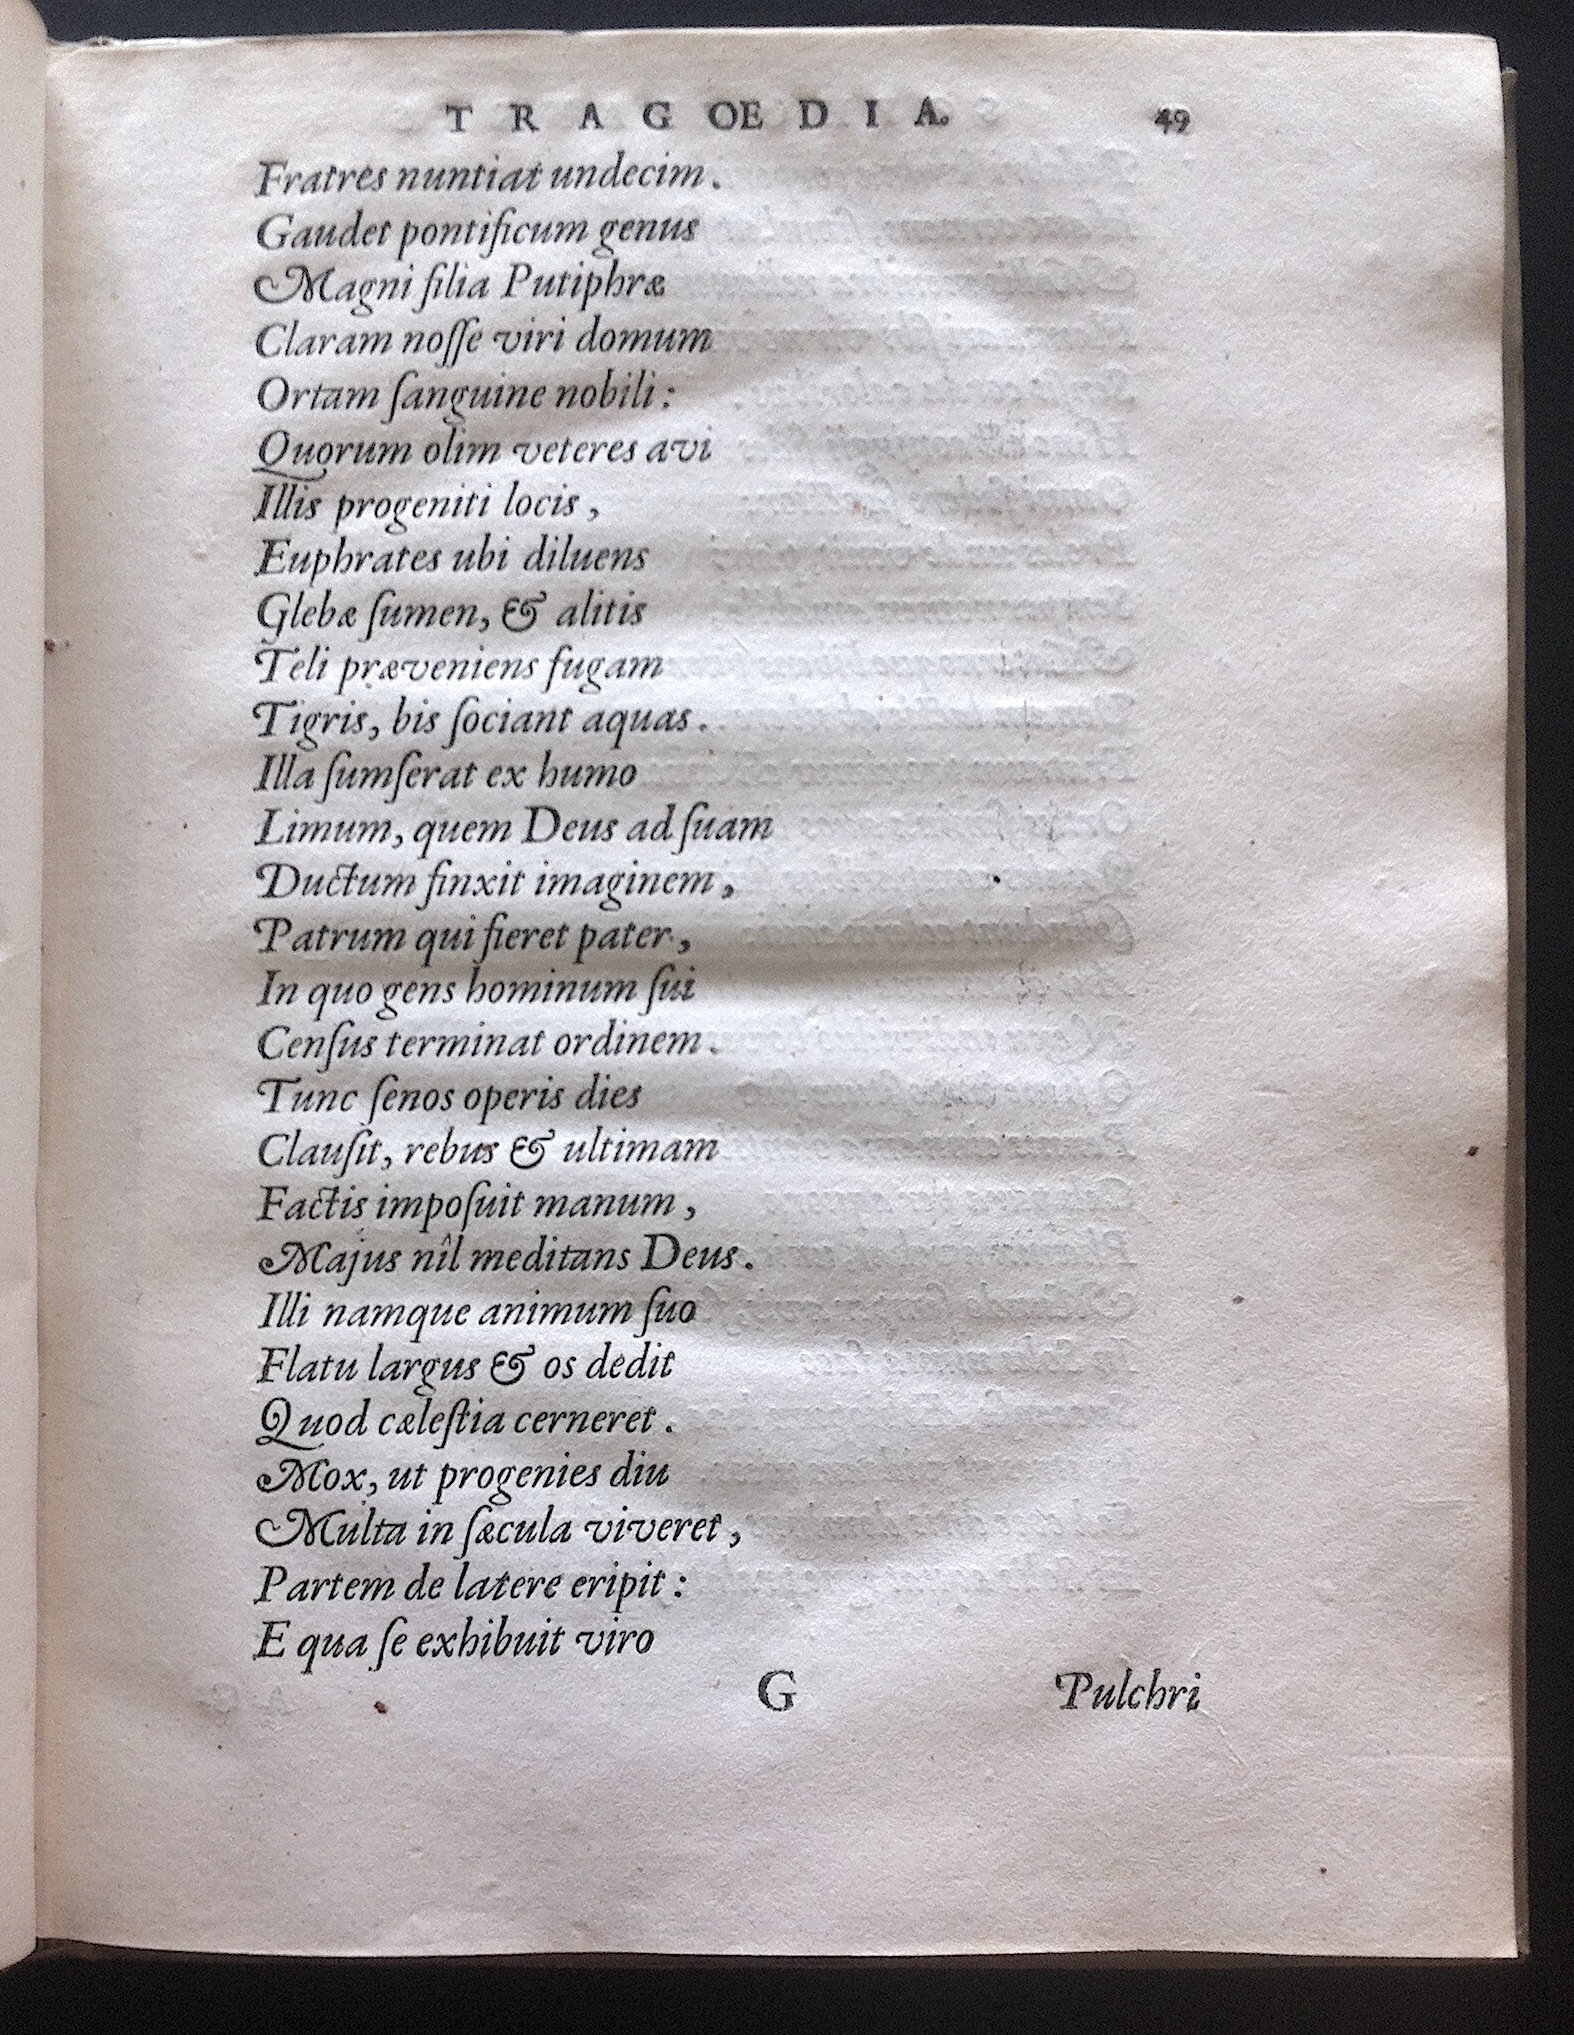 TRAGŒDIA. 49
Fratres nuntiat undecim.
Gaudet pontificum genus
Magni filia Putiphræ
Claram noſſe viri domum
Ortam ſanguine nobili:
Quorum olim veteres avi
Illis progeniti locis,
Euphrates ubi diluens
Glebæ ſumen, & alitis
Teli præveniens fugam
Tigris, bis ſociant aquas.
Illa ſumſerat ex humo
Limum, quem Deus ad ſuam
Ductum finxit imaginem,
Patrum qui fieret pater,
In quo gens hominum ſui
Cenſus terminat ordinem.
Tunc ſenos operis dies
Clauſit, rebus & ultimam
Factis impoſuit manum,
Majus nîl meditans Deus.
Illi namque animum ſuo
Flatu largus & os dedit
Quod cæleſtia cerneret.
Mox, ut progenies diu
Multa in ſæcula viveret,
Partem de latere eripit:
E qua ſe exhibuit viro
G Pulchri